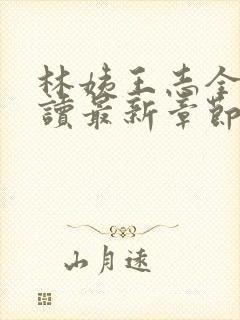 林姨王志全
讀最新章節
山月遠